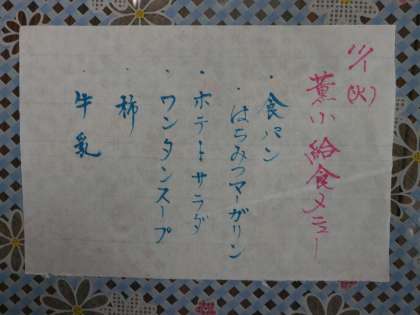 11/1(火)
薫小 給食メニュー
・食パン
・はちみつマーガリン
・ポテトサラダ
・ワンタンスープ
・柿
・牛乳